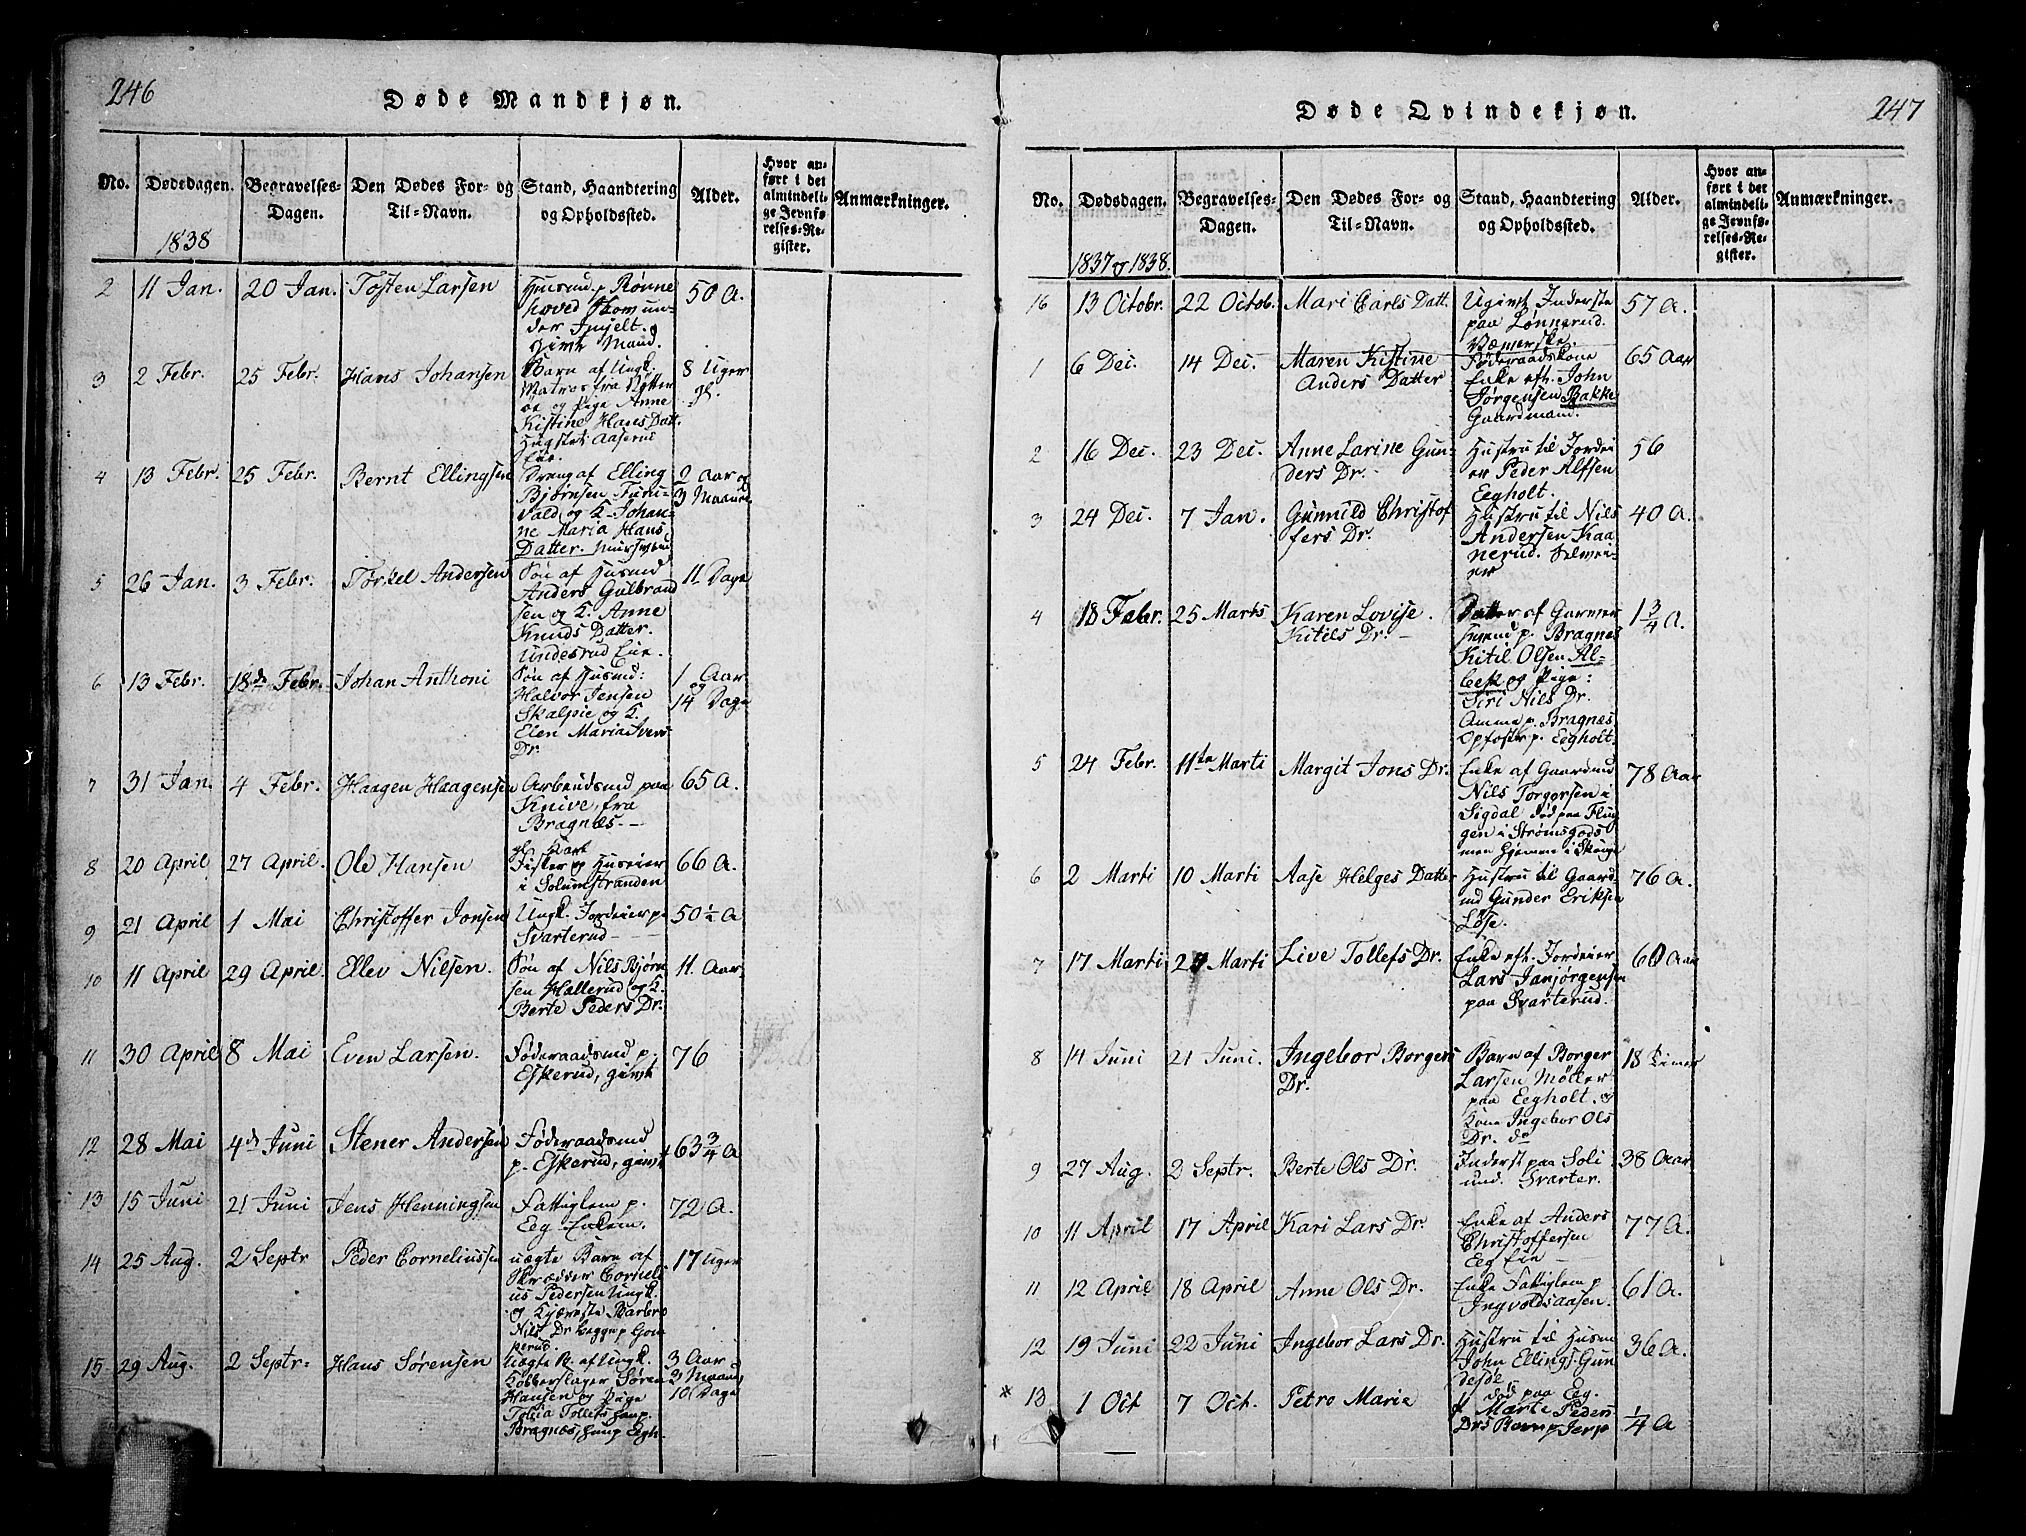 246
Døde Mandkjøn.
No.
Dødsdagen.
Begravelses-
Dagen.
Den Dødes For- og
Til-Navn.
Stand, Haandtering
og Opholdssted.
Alder.
Hvor an-
ført i det
almindeli-
ge Jevnfø-
relses-Re-
gister.
Anmærkninger.
1838
2 11 Jan. 20 Jan. Tosten Larsen
50 A.
hoved
der
givt Mand.
3 2 Febr. 25 Febr. Hans Johansen
Barn af Ungk.
Matros fra
og Pige Anne
Kistine Hans Datt.
8 Uger
gl.
4 13 Febr. 25 Febr. Bernt Ellingsen
Dreng af Elling
Bjørnsen Furu-
vald og K. Johan-
ne Maria Hans
Datter.
2 Aar og
3 Maaned
5 26 Jan. 3 Febr. Torkel Andersen
Søn af Husmd
Anders Gulbrand
sen og K. Anne
Knuds Datter.
Undesrud Eie.
11 Dage
6 13 Febr. 18de Febr. Johan Anthoni
Søn af Husmd:
Halvor Jensen
Skalpie og K.
Elen Maria Ivers
Dr.
1 Aar
og
14 Dage
7 31 Jan. 4 Febr. Haagen Haagensen
Arbeidsmd paa
Knive, fra
Bragnæs.
65 A.
8 20 April 27 April. Ole Hansen
Fisker og Huseier
i Solumstranden
66 A.
9 21 April 1 Mai Christoffer Jonsen
Ungk. Jordeier p.
Svarterud
50 1/2 A
10 11 April 29 April. Ellev Nilsen.
Søn af Nils Bjørn
sen Hallerud og K.
Berte Peders Dr.
11. Aar
11 30 April 8 Mai Even Larsen.
Føderaadsmd p.
Eskerud, givt
76
12 28 Mai 4de Juni Stener Andersen
Føderaadsmd
p. Eskerud, givt
63 3/4 A
13 15 Juni 21 Juni Jens Henningsen
Fattiglem p.
Eeg Enkem.
72 A.
14 25 Aug. 2 Septr Peder Corneliussen
uægte Barn af
Skrædder Corneli
us Pedersen Ungk.
og Kjæreste Barbro
Nils Dr
17 Uger
15 29 Aug. 2 Septr. Hans Sørensen
Uægte B. af Ungk.
Kobberslager Søren
Hansen og Pige
Tollefs
Bragnæs,
3 Aar
3 Maand,
10 Dage
247
Døde Qvindekjøn.
No.
Dødsdagen.
Begravelses-
Dagen.
Den Dødes For- og
Til-Navn.
Stand, Haandtering
og Opholdssted.
Alder.
Hvor an-
ført i det
almindeli-
ge Jevnfø-
relses-Re-
gister.
Anmærkninger.
1837 og 1838.
16 13 Octobr. 22 Octob. Mari Carls Datt.
Ugivt Inderste
paa Lønnerud.
57 A.
1 6 Dec. 14 Dec. Maren Kistine
Anders Datter
Føderaadskone
Enke eft. John
Jørgensen Bakke
Gaardmand.
65 Aar
2 16 Dec. 23 Dec. Anne Larine Gun-
ders Dr.
Hustru til Jordei
er Peder Alfsen
Eegholt.
56
3 24 Dec. 7 Jan. Gunnild Christof
fers Dr.
Hustru til Nils
Andersen Kaa
nerud.
40 A.
4 18 Febr. 25 Marts Karen Lovise.
Kitils Dr.
Datter af
p. Bragnæs
Kitil Olsen Al-
bek og Pige:
Siri Nils Dr.
Amme p. Bragnæs
Opfostr p. Eegholt.
1 3/4 A.
5 24 Febr. 11te Marti Margit Jons Dr.
Enke af Gaardmd
Nils Torgersen i
Sigdal død paa
i Strømsgods
men hjemme i
78 Aar
6 2 Marti 10 Marti Aase Helges Datter
Hustru til Gaard
md Gunder Eriksen
Løse.
76 A.
7 17 Marti Marti Live Tollefs Dr.
Enke eft. Jordeier
Lars Janjørgensen
paa Svarterud.
60 Aar
8 14 Juni 21 Juni. Ingebor Borgers
Dr.
Barn af Borger
Larsen Møller
paa Eegholt. og
Kone Ingebor Ols
Dr. do
18 Timer
9 27 Aug. 2 Septr. Berte Ols Dr.
Inderst paa Soli
und. Svarter.
38 Aar
10 11 April 17 April Kari Lars Dr.
Enke af Anders
Christoffersen
Eeg Eie
77 A.
11 12 April 18 April Anne Ols Dr.
Enke Fattiglem p
Ingvoldsaasen.
61 A.
12 19 Juni 22 Juni Ingebor Lars Dr.
Hustru til Husm
John Ellings. Gun
desdé
36 A.
* 13 1 Oct 7 Oct. Petro Maria
død paa Eeg.
f Marte Peders
Drs Barn p Jerp
1/4 A